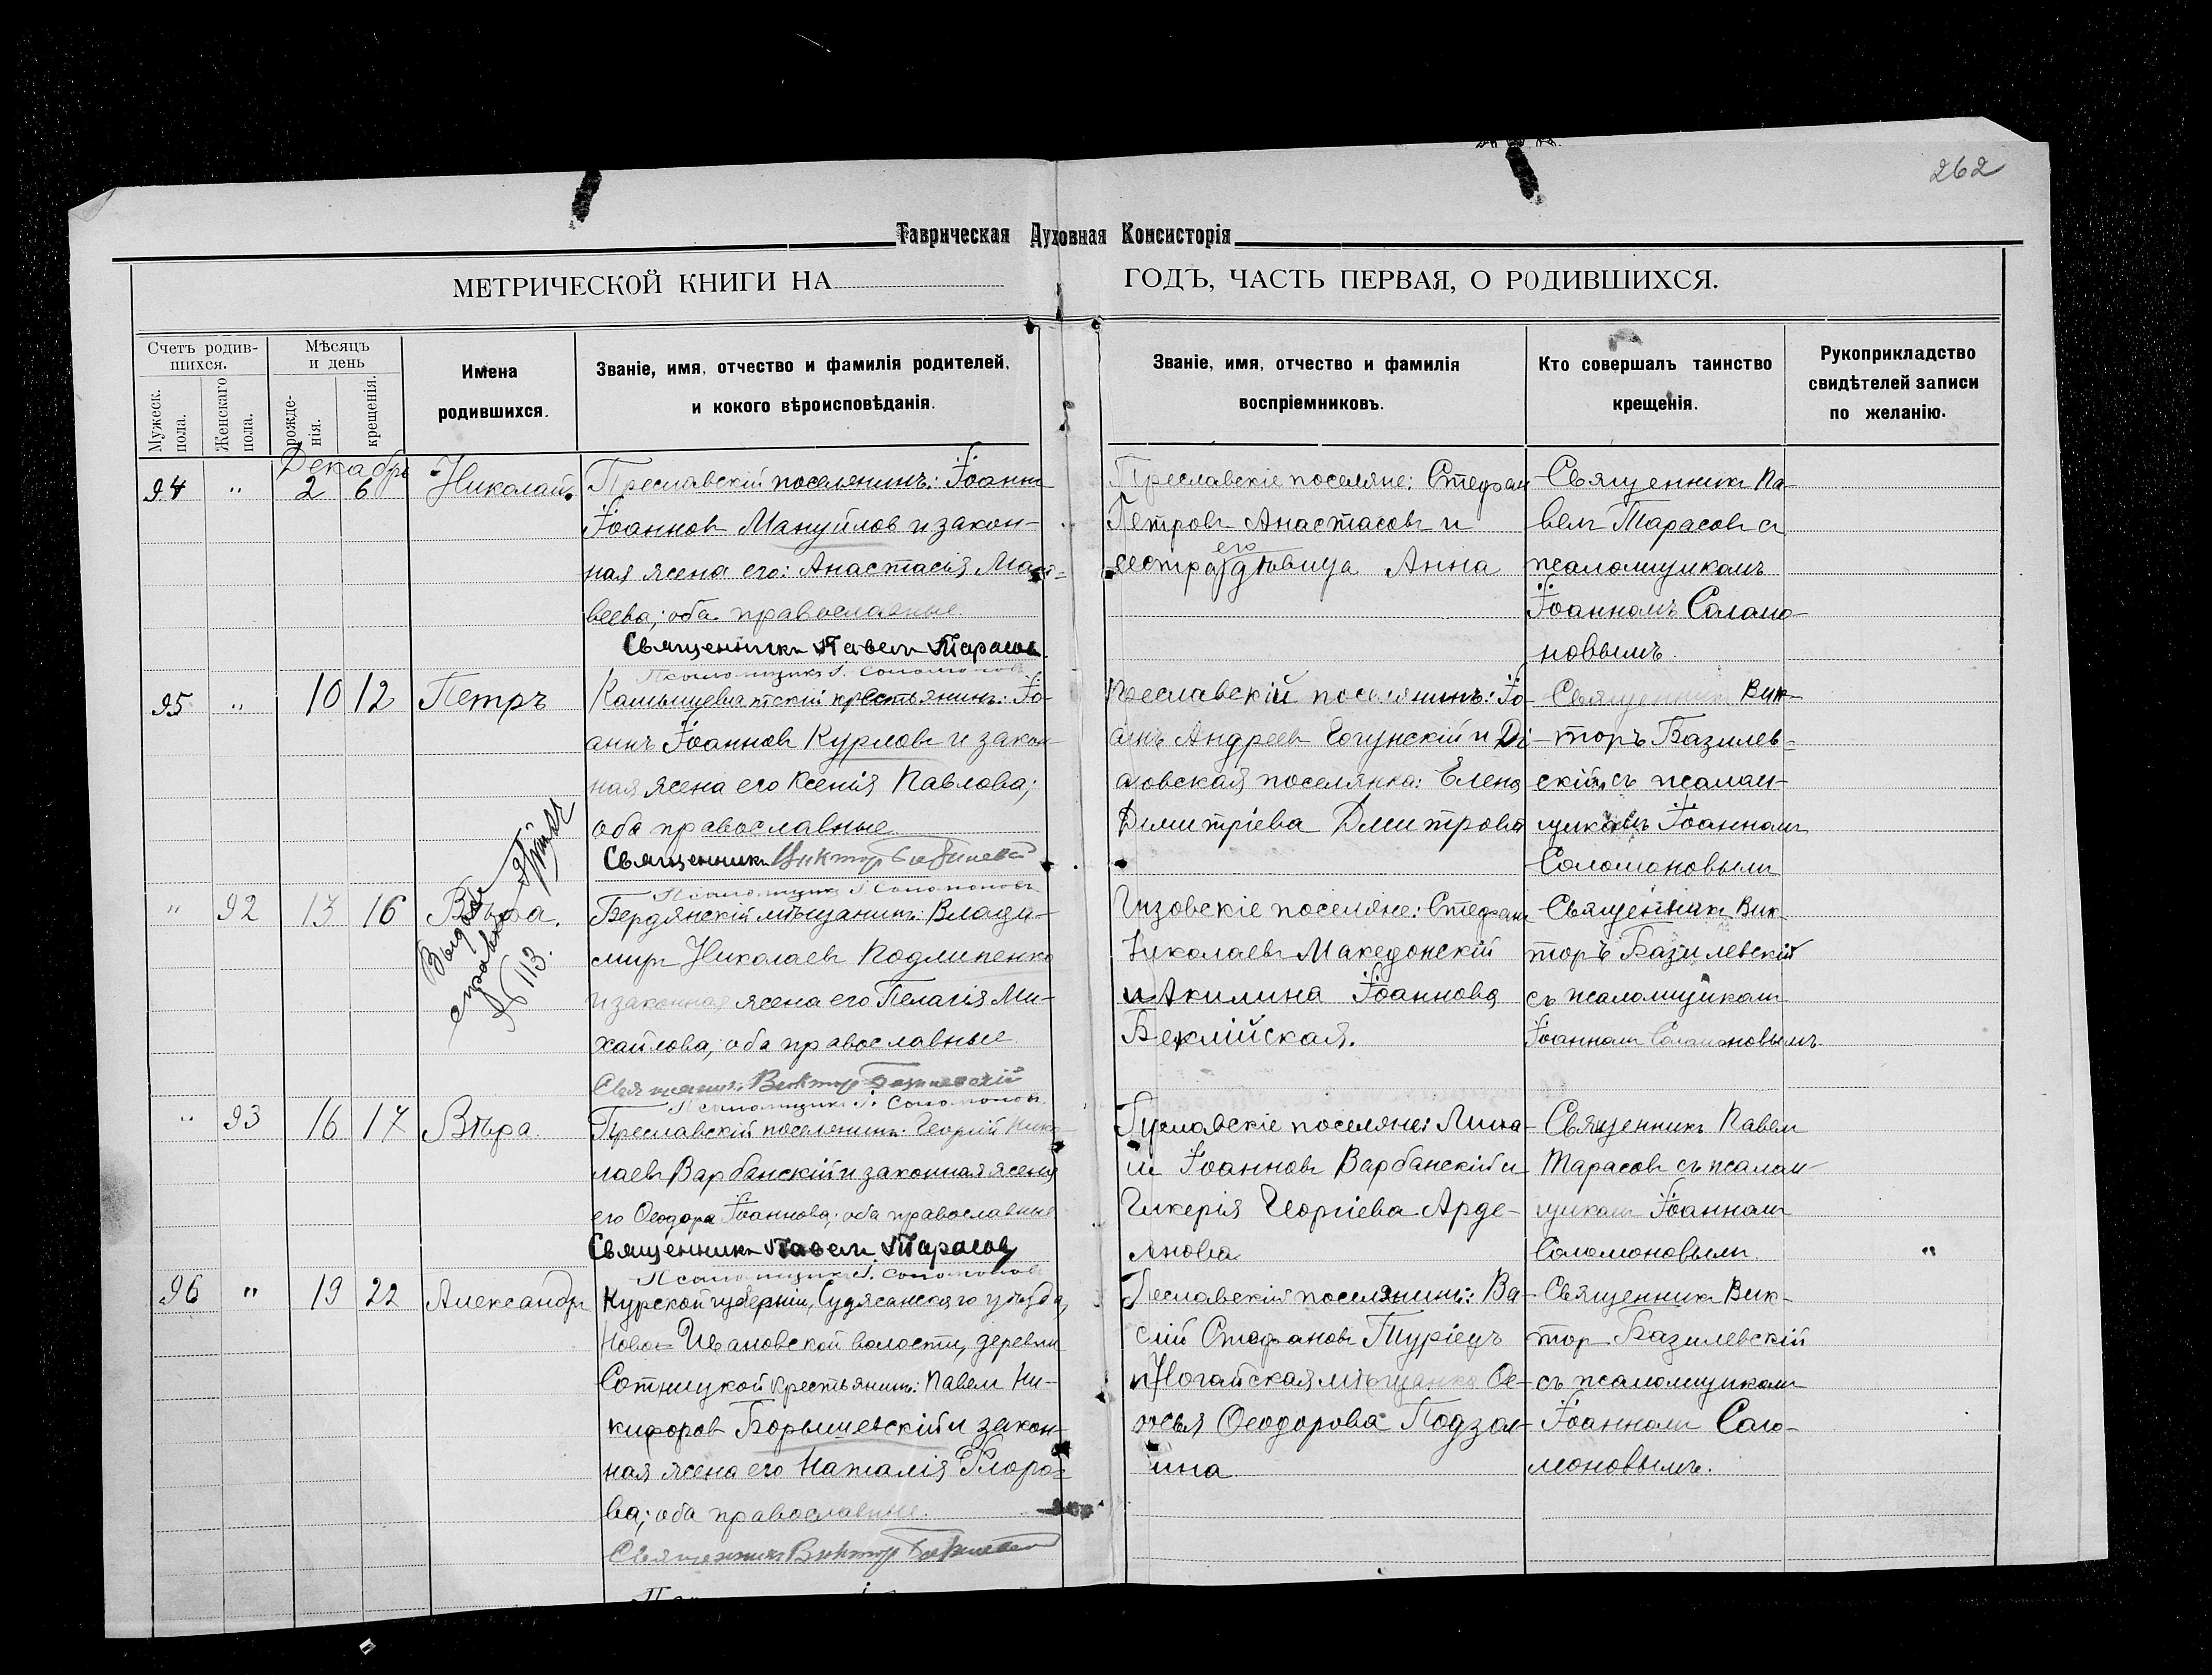 262
Таврическая Духовная Консисторія
МЕТРИЧЕСКОЙ КНИГИ НА ГОДЪ, ЧАСТЬ ПЕРВАЯ, О РОДИВШИХСЯ.
Счетъ родив-
шихся.
Мужеск. пола.
Женскаго пола.
Мѣсяцъ и день
рожде-нія.
крещенія.
Имена родившихся.
Званіе, имя, отчество и фамилія родителей,
и кокого вѣроисповѣданія.
Званіе, имя, отчество и фамилія
воспріемниковъ.
Кто совершалъ таинство
крещенія.
Рукоприкладство
свидѣтелей записи
по желанію.
Декабрь
94 " 2 6 Николай
Преславскій поселянинъ: Іоаннъ
Іоанновъ Мануйлов и закон-
ная жена его: Анастасія Мат-
веева; оба православные.
Священникъ Павелъ Тарасов
Псаломщикъ І. Соломоновъ
Преславскіе поселяне: Стефан
Петровъ Анастасовъ и
сестра его дѣвица Анна
Священникъ Па-
велъ Тарасовъ съ
псаломщикомъ
Іоанномъ Соломо-
новымъ.
95 " 10 12 Петръ
Камышеватскій крестьянинъ: Іо-
аннъ Іоаннов Курловъ и закон-
ная жена его Ксенія Павлова;
оба православные
Священникъ Виктор Базилевс
Псаломщикъ І. Соломоновъ
Преславскій поселянинъ: Іо-
аннъ Андреев Гогунскій и Ді-
ановская поселянка: Елена
Димитріева Дмитрова
Священникъ Вик-
торъ Базилев-
скій съ псалом-
щикомъ Іоанномъ
Соломоновымъ
" 92 13 16 Вѣра.
Выдана
справка
№ 113.
Бердянскій мѣщанинъ: Влади-
миръ Николаевъ Подлипенко
и законная жена его Пелагія Ми-
хайлова; оба православные
Священникъ Виктор Базилевскій
Псаломщикъ І. Соломонов
Гизовскіе поселяне: Стефанъ
Николаевъ Македонскій
и Акилина Іоаннова
Беклійская.
Священникъ Вик-
торъ Базилевскій
съ псаломщикомъ
Іоанномъ Соломоновымъ
" 93 16 17 Вѣра.
Преславскій поселянинъ: Георгій Нико-
лаевъ Варбанскій и законная жена
его Ѳеодора Іоаннова; оба православные
Священникъ Павелъ Тарасовъ
Псаломщикъ І. Соломонов
Преславскіе поселяне: Миха-
ил Іоанновъ Варбанскій и
Гликерія Георгіева Арде-
лнова
Священникъ Павелъ
Тарасовъ съ псалом-
щикомъ Іоанномъ
Соломоновымъ.
"
96 " 19 22 Александръ
Курской губерніи, Суджанскаго уѣзда,
Ново-Ивановской волости, деревни
Сотницкой крестьянинъ: Павелъ Ни-
кифоров Борышевскій и закон-
ная жена его Наталія Флоро-
ва; оба православные.
Священникъ Виктор Базилевс
Преславскій поселянинъ: Ва-
силій Стефановъ Туріецъ
и Ногайская мѣщанка Ѳе-
Ѳеодорова
ина
Священникъ Вик-
тор Базилевскій
съ псаломщикомъ
Іоанномъ Соло-
моновымъ.